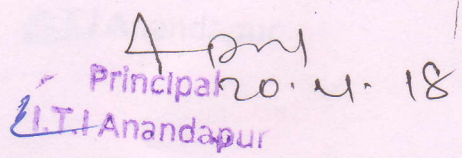 Principal 20.4.18
I.T.I Anandapur